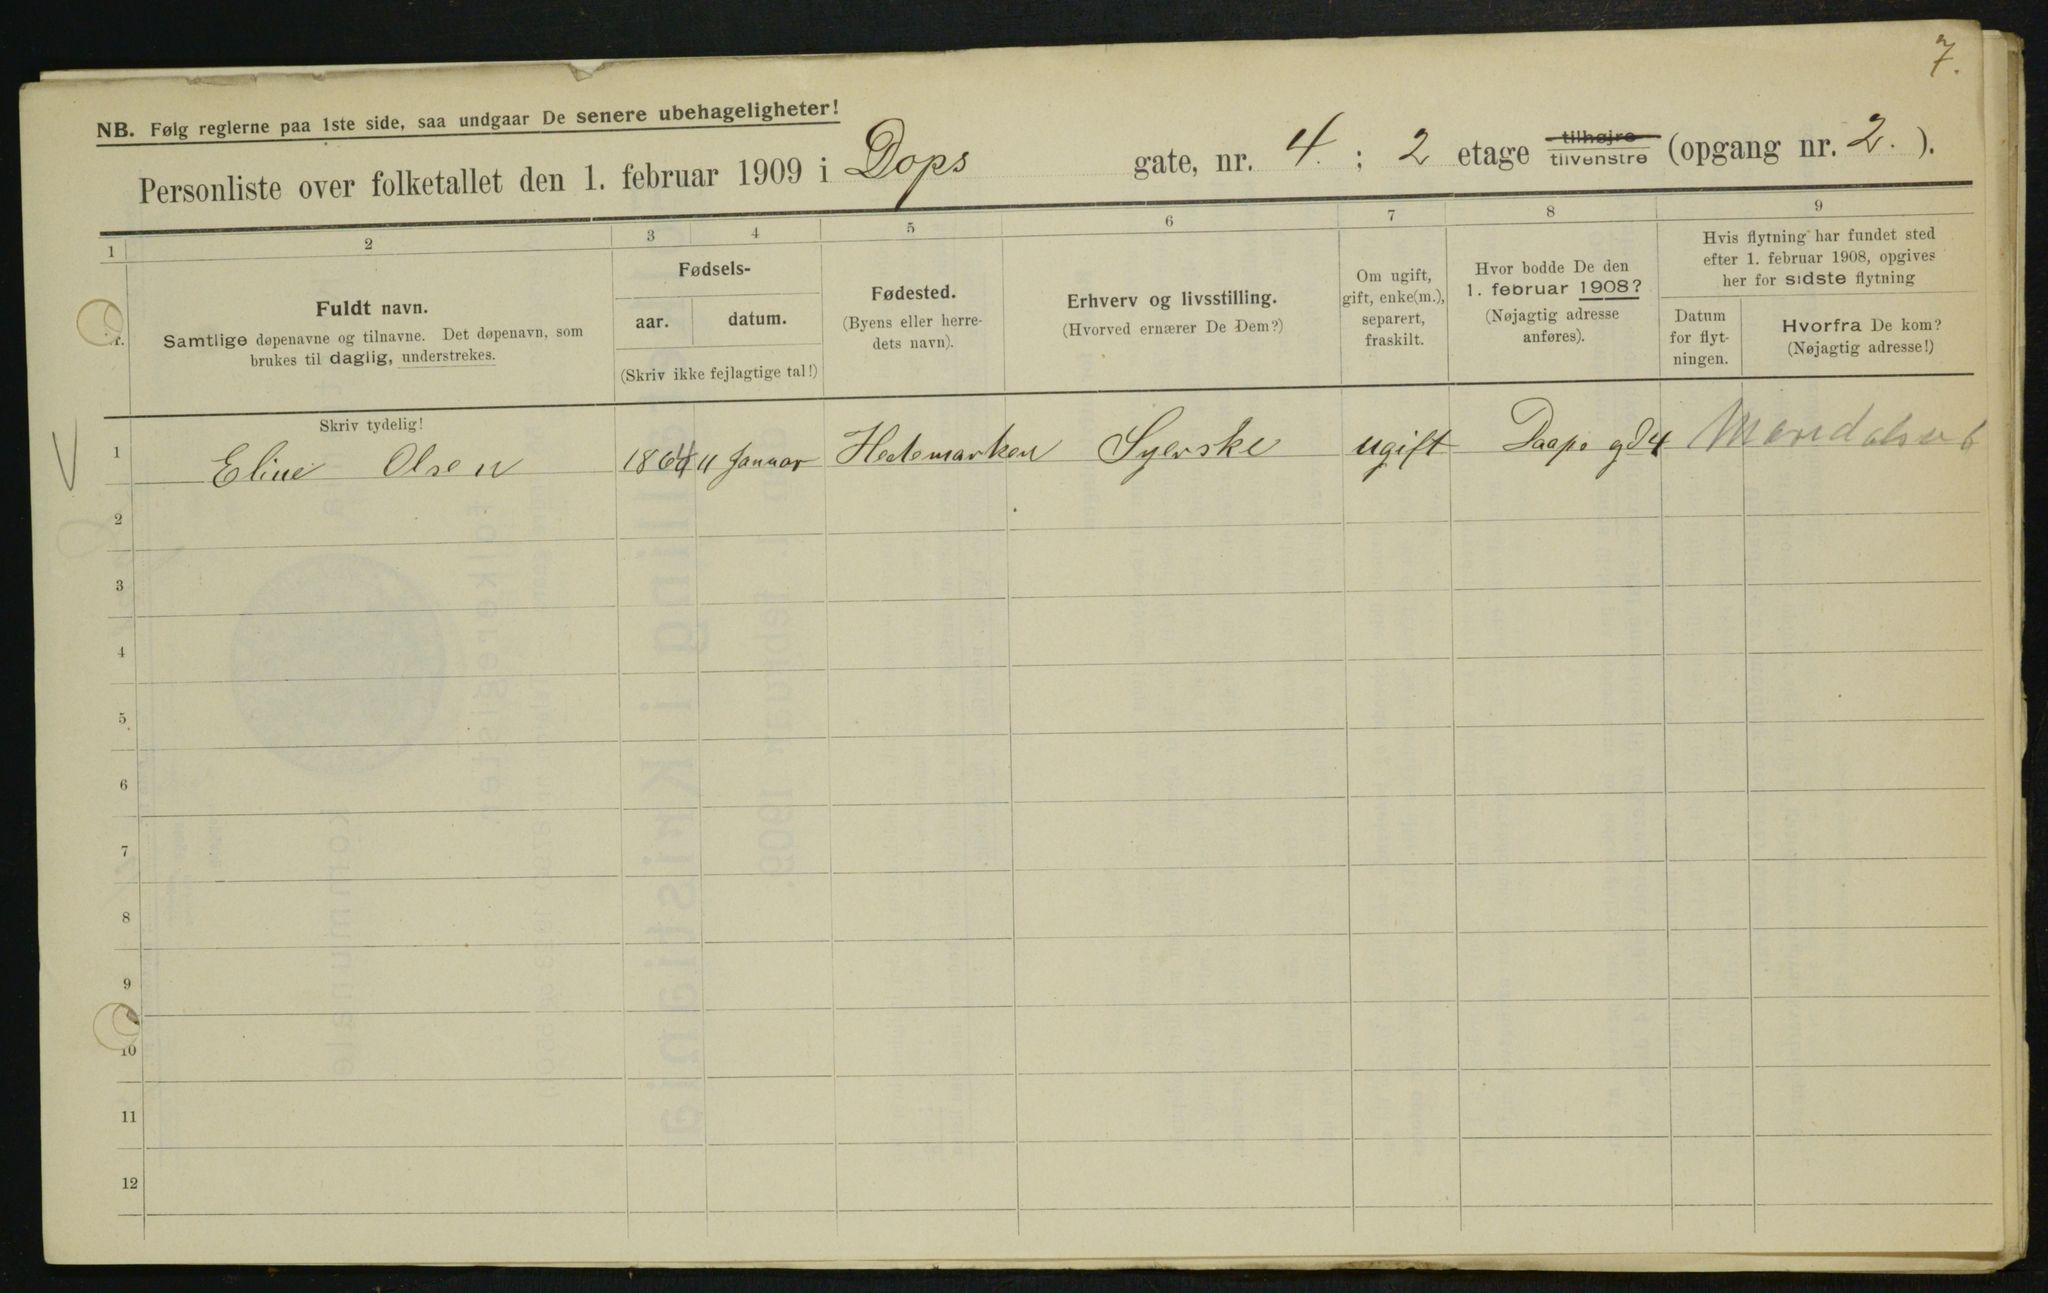 7.
NB. Følg reglerne paa 1ste side, saa undgaar De senere ubehageligheter!
Personliste over folketallet den 1. februar 1909 i Dops gate, nr. 4. ; 2 etage tilhøjre tilvenstre (opgang nr. 2. ).
1 2 3 4 5 6 7 8 9
Fuldt navn.
Samtlige døpenavne og tilnavne. Det døpenavn, som
brukes til daglig, understrekes.
Fødsels-
aar. datum.
(Skriv ikke fejlagtige tal!)
Fødested.
(Byens eller herre-
dets navn).
Erhverv og livsstilling.
(Hvorved ernærer De Dem?)
Om ugift,
gift, enke(m.),
separert,
fraskilt.
Hvor bodde De den
1. februar 1908?
(Nøjagtig adresse
anføres).
Hvis flytning har fundet sted
efter 1. februar 1908, opgives
her for sidste flytning
Datum
for flyt-
ningen.
Hvorfra De kom?
(Nøjagtig adresse!)
Skriv tydelig!
1 Eline Olsen 1864 11 Januar Hedemarken Syerske ugift Daaps gd 4
2
3
4
5
6
7
8
9
10
11
12